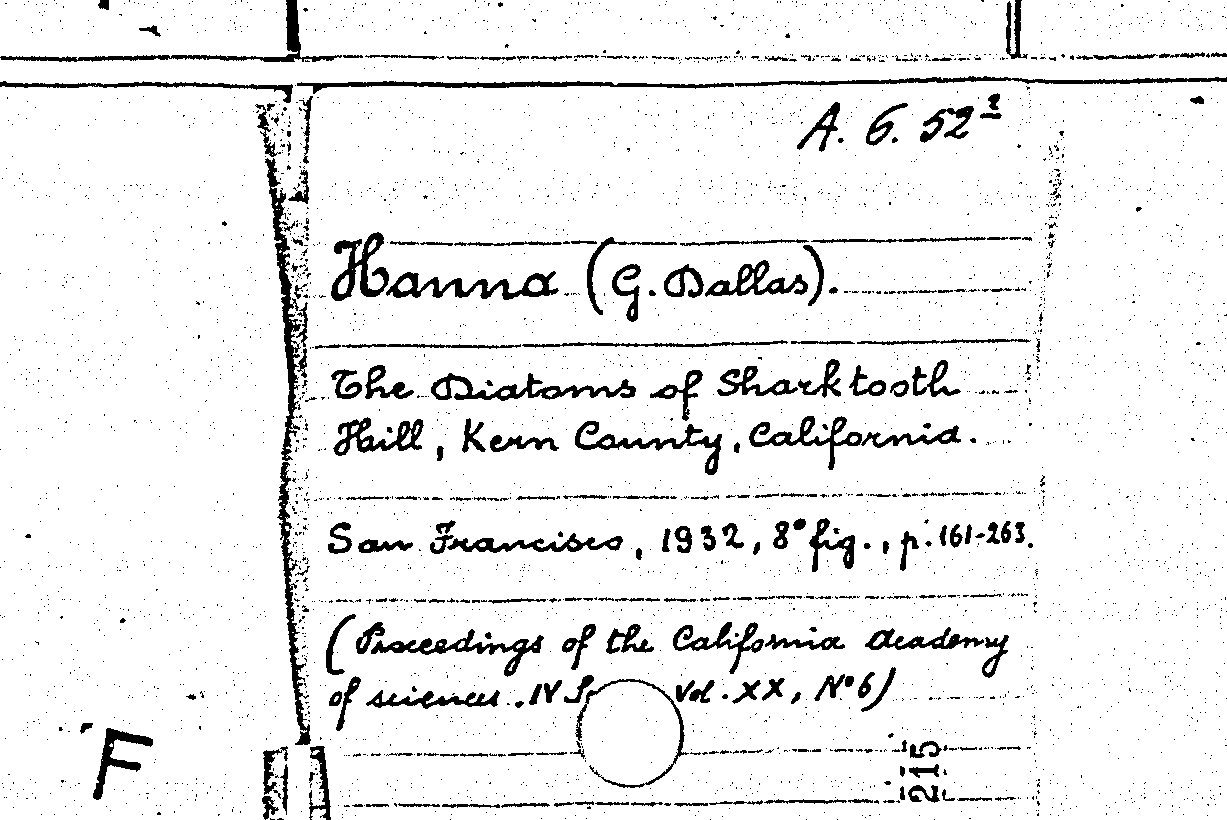 A. 6. 52²
Hanna (G. Dallas).
The Diatoms of Sharktooth
Hill, Kern County, California.
San Francisco, 1932, 8° fig., p. 161-263.
(Proceedings of the California Academy
of sciences. IV S Vol. XX, N° 6)
F
215